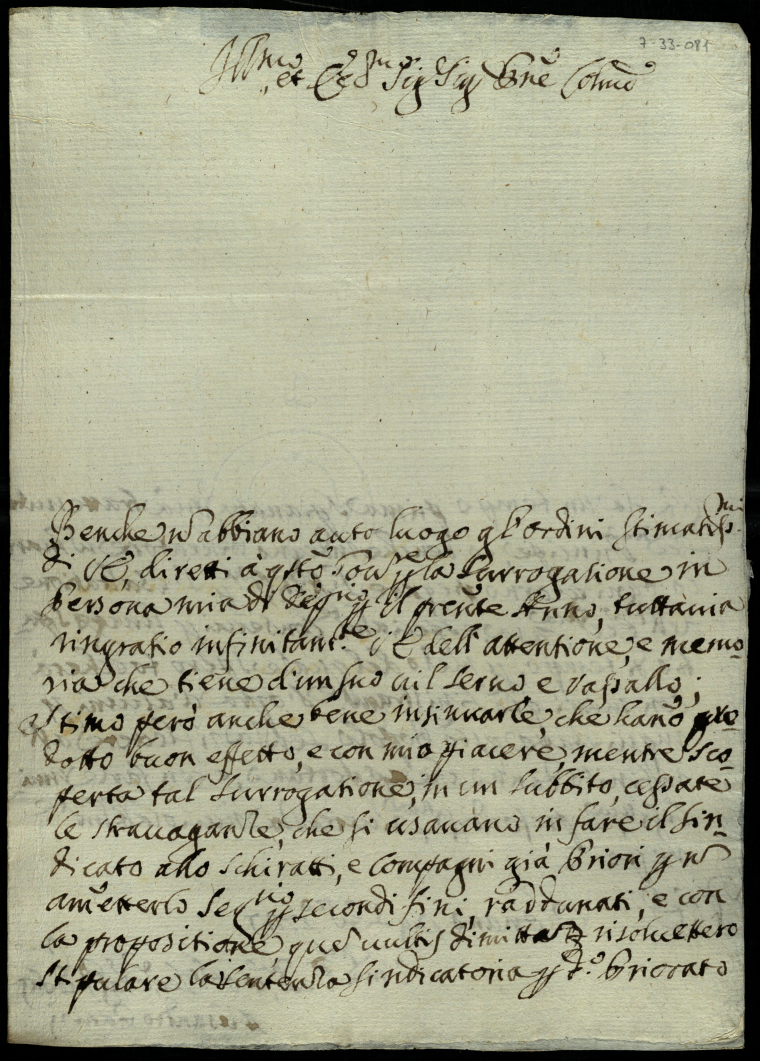 7-33-081
Ill.mo et Ecc.mo Sig.r Sig.r Pne Colmo
Benche nō abbiano auto luogo gl'ordini stimatiss.mi
di V.E. diretti à qsto Gov.re p la surrogatione in
persona mia di Seg.rio p il prēnte Anno, tuttavia
ringratio infinitam.te V.E. dell'attentione, e memo-
ria che tiene d'un suo vil servo e vassallo;
stimo però anche bene insinuarle, che hanō pro-
dotto buon effetto, e con mio piacere, mentre sco-
perta tal surrogatione, in un subbito, cessate
le stravaganze, che si usavano in fare il sin-
dicato allo Schiratti, e compagni già Priori p nō
am̄etterlo Seg.rio p secondi fini, raddunati, e con
la propositione, dimitta risoluettero
stipulare la sentenza sindicatoria p d.o Priorato